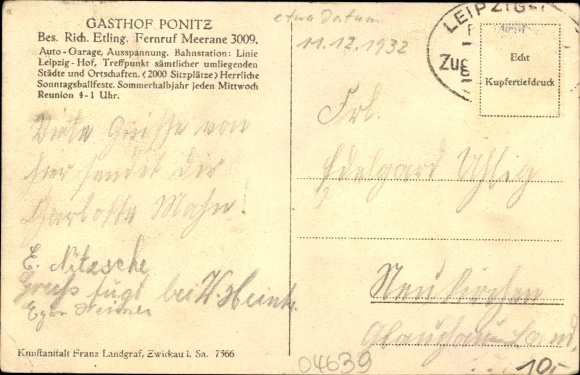 GASTHOF PONITZ
Bes. Rich. Etling. Fernruf Meerane 3009.
Auto-Garage, Ausspannung. Bahnstation: Linie
Leipzig-Hof, Treffpunkt sämtlicher umliegenden
Städte und Ortschaften. (2000 Sitzplätze) Herrliche
Sonntagsballfeste. Sommerhalbjahr jeden Mittwoch
Reunion 4-1 Uhr.
etwa Datum
11.12.1932
LEIPZIG-
Zug
Echt
Kupfertiefdruck
Viele Grüsse von
hier sendet dir
Charlotte Mahn!
E. Nitzsche
Gruß fügt bei W. Hein
Egon
Frl.
Edelgard Uhlig
Neukirchen
Glauchau-Land
Kunstanstalt Franz Landgraf, Zwickau i. Sa. 7566
04639
10,-